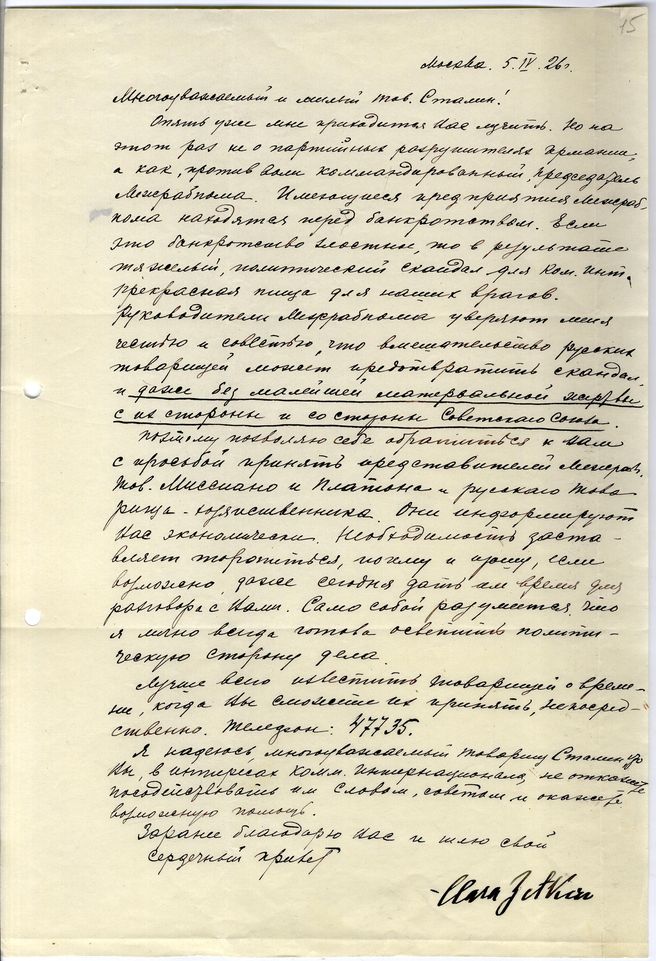 15
Москва. 5.IV.26г.
Многоуважаемый и милый тов. Сталин!
Опять уже мне приходится Вас мучить. Но на
этот раз не о партийных разрушителях Германии,
а как, против воли коммандированный, председатель
Межрабпома. Имеющиеся предприятия Межраб-
пома находятся перед банкротством. Если
это банкротство злостное, то в результате
тяжелый, политический скандал для Ком. Инт.
прекрасная пища для наших врагов.
Руководители Межрабпома уверяют меня
честью и совестью, что вмешательство русских
товарищей может предотвратить скандал,
и даже без малейшей материальной жертвы
с их стороны и со стороны Советского Союза.
Поэтому позволяю себе обратиться к Вам
с просьбой принять представителей Межраб.
тов. Миссиано и Платона и русского това
рища - хозяйственника. Они информируют
Вас экономически. Необходимость заста-
вляет торопиться, почему и прошу, если
возможно, даже сегодня дать им время для
разговора с Вами. Само собой разумеется, что
я лично всегда готова осветить полити-
ческую сторону дела.
Лучше всего известить товарищей о време-
ни, когда Вы сможете их принять, непосред-
ственно. Телефон: 47735.
Я надеюсь многоуважаемый товарищ Сталин что
Вы, в интересах Комм. Интернационала, не откажете
посодействовать им словом, советом и окажете
возможную помощь.
Заранее благодарю Вас и шлю свой
сердечный привет
Clara Zetkin